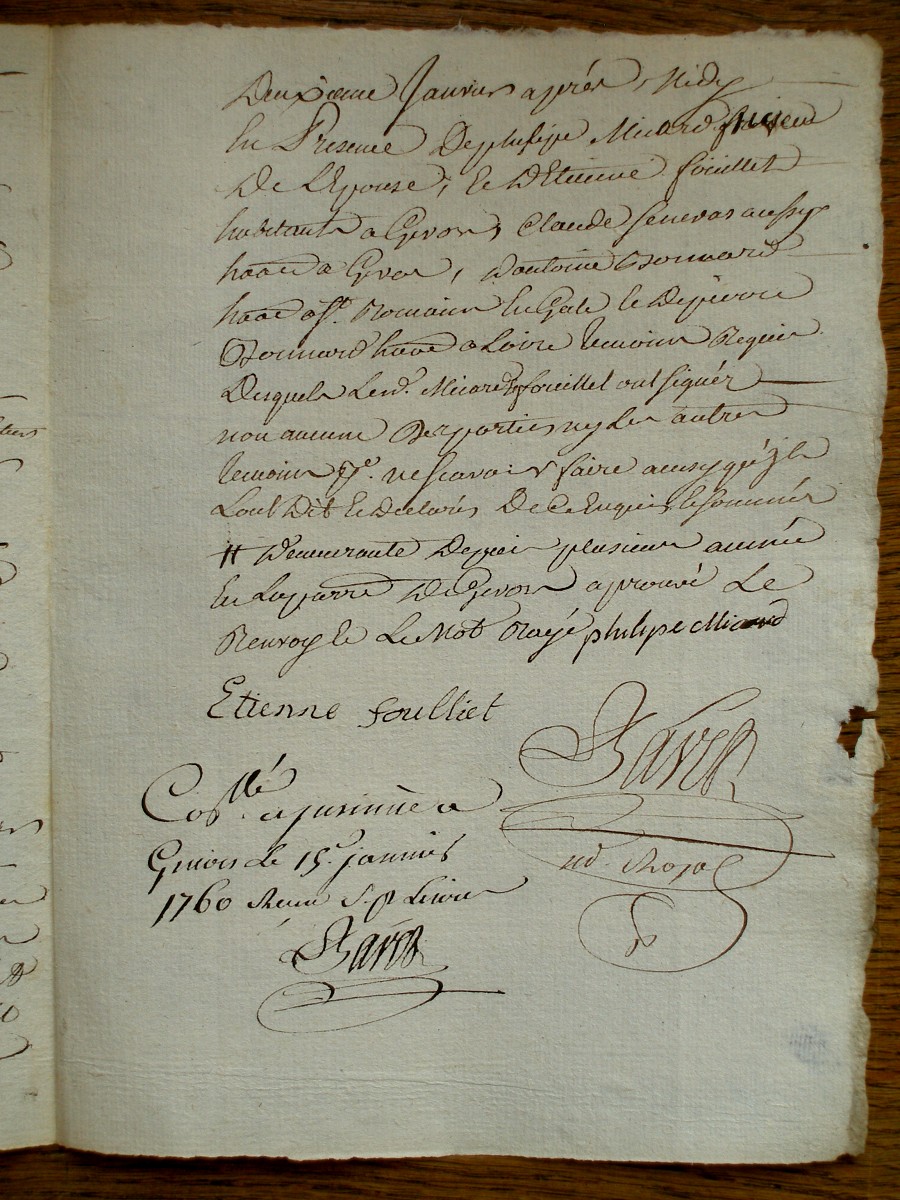 Deuxieme Janvier après Midy
En Presence De philipe Micard
De L'Epouse, et D'Etienne fouillet
habitants a Givors, Claude senevas aussy
habt a Givors, D'antoine Bonnard
habt a St. Romain En Gale et De pierre
Bonnard habt a Loire temoins Requis
Desquels Lesd. Micard et fouillet ont signés
non aucune Des parties ny Les autres
temoins p. ne scavoir faire ainsy qu'jls
L'ont Dit et declarés De Ce Enquis et sommés
# Demeurante Depuis plusieurs année
En La parre De Givors aprouvé Le
Renvoy et Le Mot Rayé philipe Micard
Etienne foulliet
Collé
a
Givors Le 15e janvier
1760 Receu
No. Royal